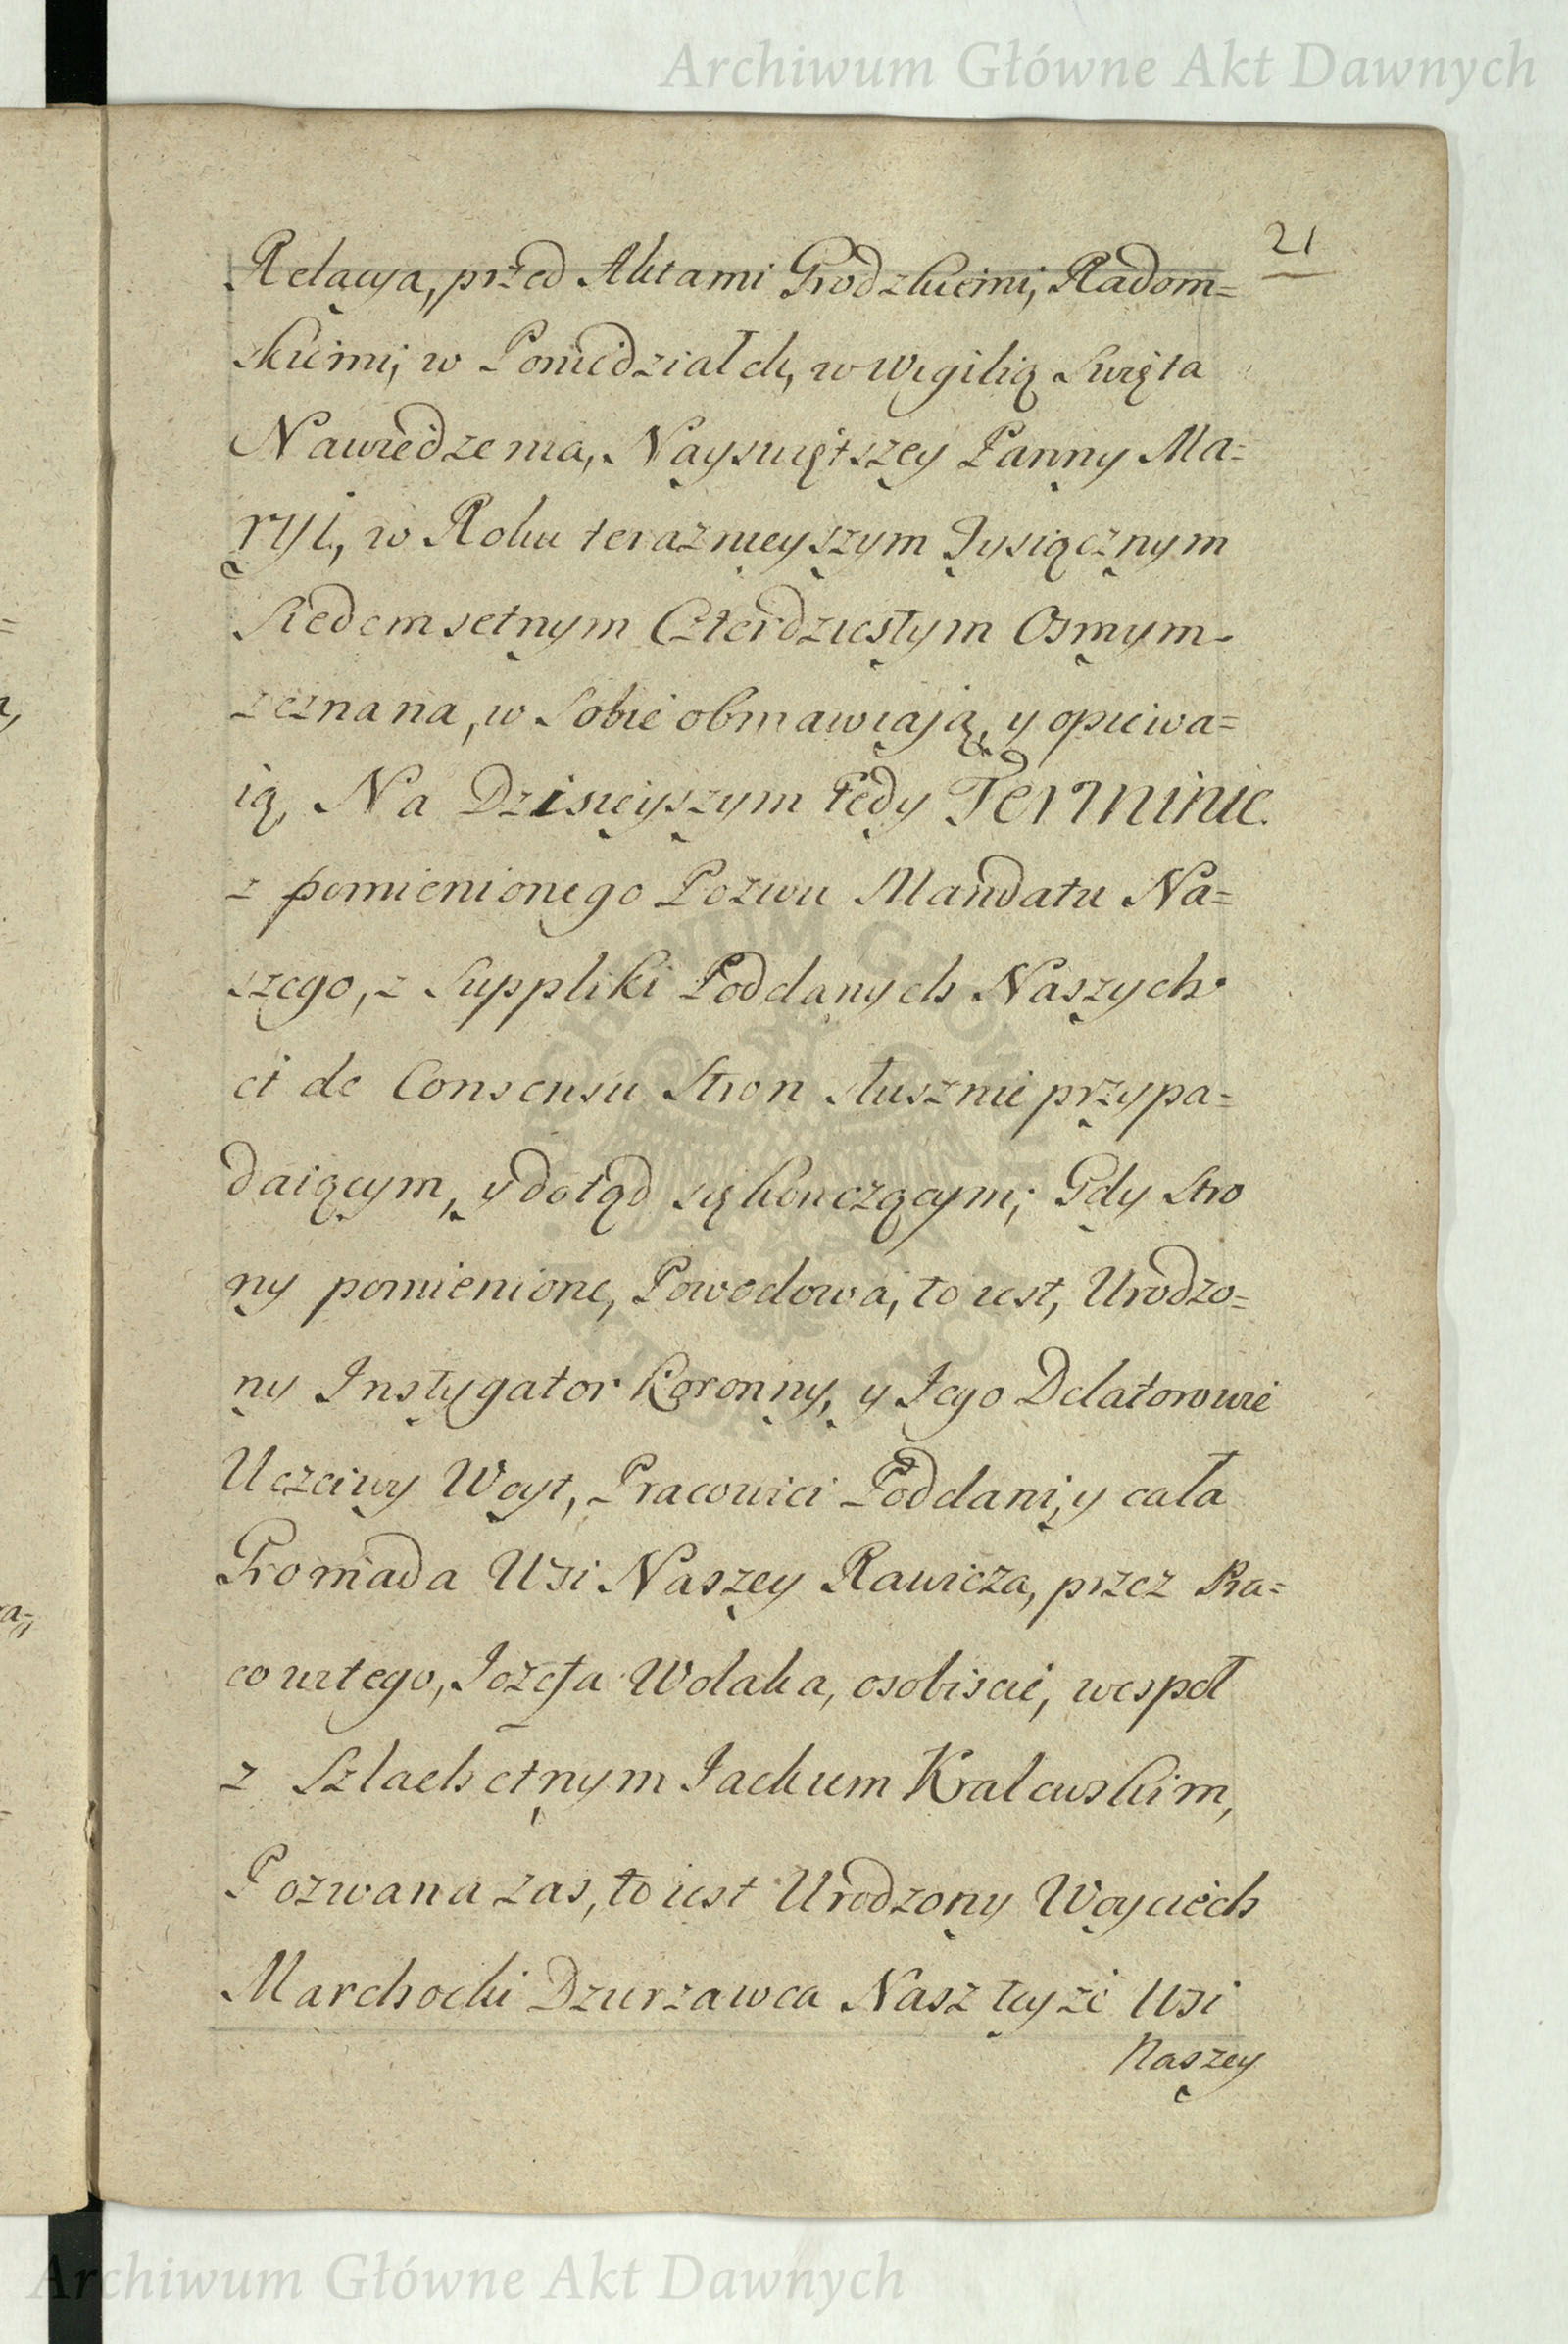 Archiwum Główne Akt Dawnych
21
Relacya, przed Aktami Grodzkiemi, Radom=
skiemi, w Poniedziałek, w Wigilią Swięta
Nawiedzenia, Nayswiętszey Panny Ma=
ryi, w Roku teraznieyszym Tysiącznym
Siedemsetnym Czterdziestym Osmym
zeznana, w Sobie obmawiają, y opiewa=
ią, Na Dzisieyszym tedy Terminie
z pomienionego Pozwu Mandatu Na=
szego, z Suppliki Poddanych Naszych
et de Consensu Stron słusznie przypa=
daiącym, y dotąd się kończącym; Gdy Stro
ny pomienione, Powodowa, to iest, Urodzo=
ny Instygator Koronny, y Jego Delatorowie
Uczciwy Woyt, Pracowici Poddani, y cała
Gromada Wsi Naszey Rawicza, przez Pra=
cowitego, Jozefa Wolaka, osobiscie, wespoł
z Szlachetnym Jackiem Kralewskim,
Pozwana zas, to iest Urodzony Woyciech
Marchocki Dzierzawca Nasz teyże Wsi
Naszey
ARCHIWUM GŁÓWNE AKT DAWNYCH
Archiwum Główne Akt Dawnych